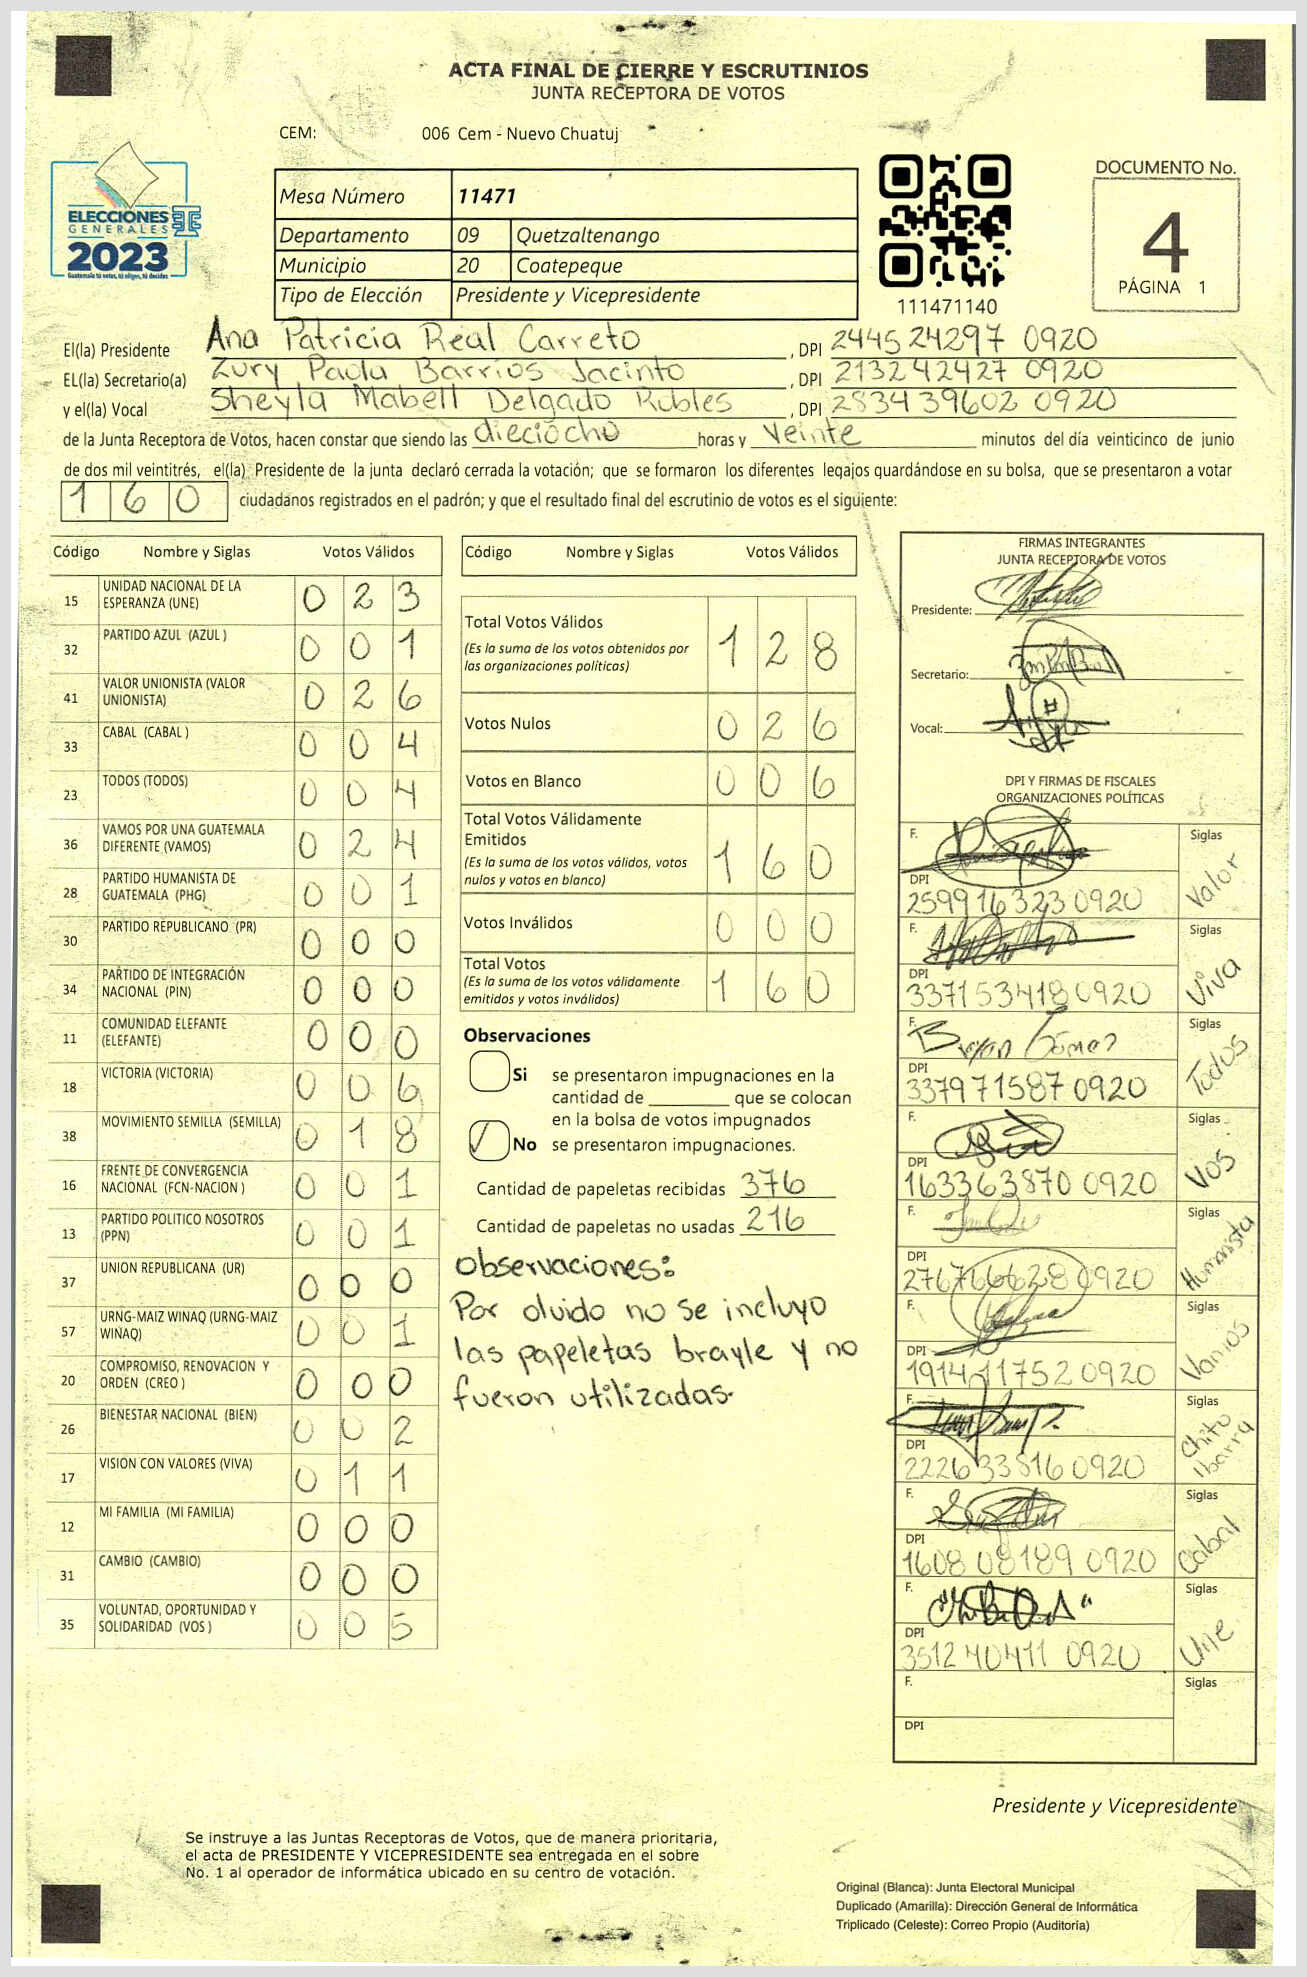 ACTA FINAL DE CIERRE Y ESCRUTINIOS
JUNTA RECEPTORA DE VOTOS
CEM: 006 Cem - Nuevo Chuatuj
ELECCIONES
GENERALES
2023
Guatemala tú votas, tú eliges, tú decides
Mesa Número 11471
Departamento 09 Quetzaltenango
Municipio 20 Coatepeque
Tipo de Elección Presidente y Vicepresidente
111471140
DOCUMENTO No.
4
PÁGINA 1
El(la) Presidente Ana Patricia Real Carreto, DPI 2445 24297 0920
EL(la) Secretario(a) Zury Paola Barrios Jacinto, DPI 2132 42427 0920
y el(la) Vocal Sheyla Mabell Delgado Robles, DPI 2834 39602 0920
de la Junta Receptora de Votos, hacen constar que siendo las dieciocho horas y veinte minutos del día veinticinco de junio
de dos mil veintitrés, el(la) Presidente de la junta declaró cerrada la votación; que se formaron los diferentes legajos quardándose en su bolsa, que se presentaron a votar
160 ciudadanos registrados en el padrón; y que el resultado final del escrutinio de votos es el siguiente:
Código Nombre y Siglas Votos Válidos
15 UNIDAD NACIONAL DE LA ESPERANZA (UNE) 0 2 3
32 PARTIDO AZUL (AZUL ) 0 0 1
41 VALOR UNIONISTA (VALOR UNIONISTA) 0 2 6
33 CABAL (CABAL ) 0 0 4
23 TODOS (TODOS) 0 0 4
36 VAMOS POR UNA GUATEMALA DIFERENTE (VAMOS) 0 2 4
28 PARTIDO HUMANISTA DE GUATEMALA (PHG) 0 0 1
30 PARTIDO REPUBLICANO (PR) 0 0 0
34 PARTIDO DE INTEGRACIÓN NACIONAL (PIN) 0 0 0
11 COMUNIDAD ELEFANTE (ELEFANTE) 0 0 0
18 VICTORIA (VICTORIA) 0 0 6
38 MOVIMIENTO SEMILLA (SEMILLA) 0 1 8
16 FRENTE DE CONVERGENCIA NACIONAL (FCN-NACION ) 0 0 1
13 PARTIDO POLITICO NOSOTROS (PPN) 0 0 1
37 UNION REPUBLICANA (UR) 0 0 0
57 URNG-MAIZ WINAQ (URNG-MAIZ WINAQ) 0 0 1
20 COMPROMISO, RENOVACION Y ORDEN (CREO ) 0 0 0
26 BIENESTAR NACIONAL (BIEN) 0 0 2
17 VISION CON VALORES (VIVA) 0 1 1
12 MI FAMILIA (MI FAMILIA) 0 0 0
31 CAMBIO (CAMBIO) 0 0 0
35 VOLUNTAD, OPORTUNIDAD Y SOLIDARIDAD (VOS ) 0 0 5
Código Nombre y Siglas Votos Válidos
Total Votos Válidos 1 2 8
(Es la suma de los votos obtenidos por
las organizaciones políticas)
Votos Nulos 0 2 6
Votos en Blanco 0 0 6
Total Votos Válidamente
Emitidos 1 6 0
(Es la suma de los votos válidos, votos
nulos y votos en blanco)
Votos Inválidos 0 0 0
Total Votos 1 6 0
(Es la suma de los votos válidamente
emitidos y votos inválidos)
Observaciones
Si se presentaron impugnaciones en la
cantidad de ________ que se colocan
en la bolsa de votos impugnados
No se presentaron impugnaciones.
Cantidad de papeletas recibidas 376
Cantidad de papeletas no usadas 216
observaciones:
Por olvido no se incluyo
las papeletas brayle y no
fueron utilizadas.
FIRMAS INTEGRANTES
JUNTA RECEPTORA DE VOTOS
Presidente:
Secretario:
Vocal:
DPI Y FIRMAS DE FISCALES
ORGANIZACIONES POLÍTICAS
F. Siglas Valor
DPI 2599 16323 0920
F. Siglas Viva
DPI 3371 53418 0920
F. Siglas Todos
DPI 3379 71587 0920
F. Siglas Vos
DPI 1633 63870 0920
F. Siglas Humanista
DPI 2767 66628 0920
F. Siglas Vamos
DPI 1914 11752 0920
F. Siglas Chito Ibarra
DPI 2226 33816 0920
F. Siglas Cabal
DPI 1608 08189 0920
F. Siglas Une
DPI 3512 40411 0920
F. Siglas
DPI
Presidente y Vicepresidente
Se instruye a las Juntas Receptoras de Votos, que de manera prioritaria,
el acta de PRESIDENTE Y VICEPRESIDENTE sea entregada en el sobre
No. 1 al operador de informática ubicado en su centro de votación.
Original (Blanca): Junta Electoral Municipal
Duplicado (Amarilla): Dirección General de Informática
Triplicado (Celeste): Correo Propio (Auditoría)